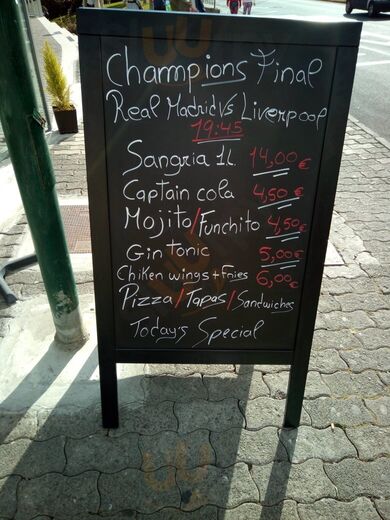 Champions Final
Real Madrid Vs Liverpool
19:45
Sangria 1L. 14,00€
Captain cola 4,50€
Mojito/Funchito 4,50€
Gin tonic 5,00€
Chiken wings + Fries 6,00€
Pizza/Tapas/Sandwiches
Today's Special